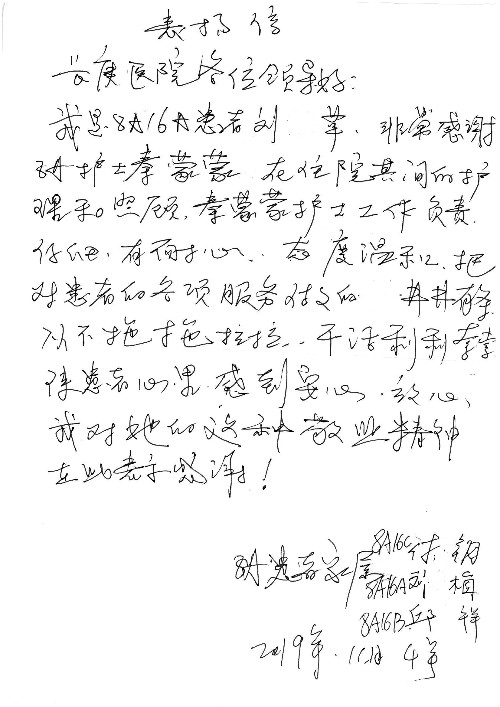 表扬信
长庚医院各位领导好：
我是8A16A患者刘 苹，非常感谢
8A护士秦蒙蒙，在住院其间的护
理和照顾，秦蒙蒙护士工作负责
仔细，有耐心，态度温和，把
对患者的各项服务做的 井井有条
从不拖拖拉拉，干活利利索索
使患者心里感到安心、放心、
我对她的这种敬业精神
在此表示感谢！
8A患者家属 8A16C
8A16A刘
8A16B
2019年.11月4号